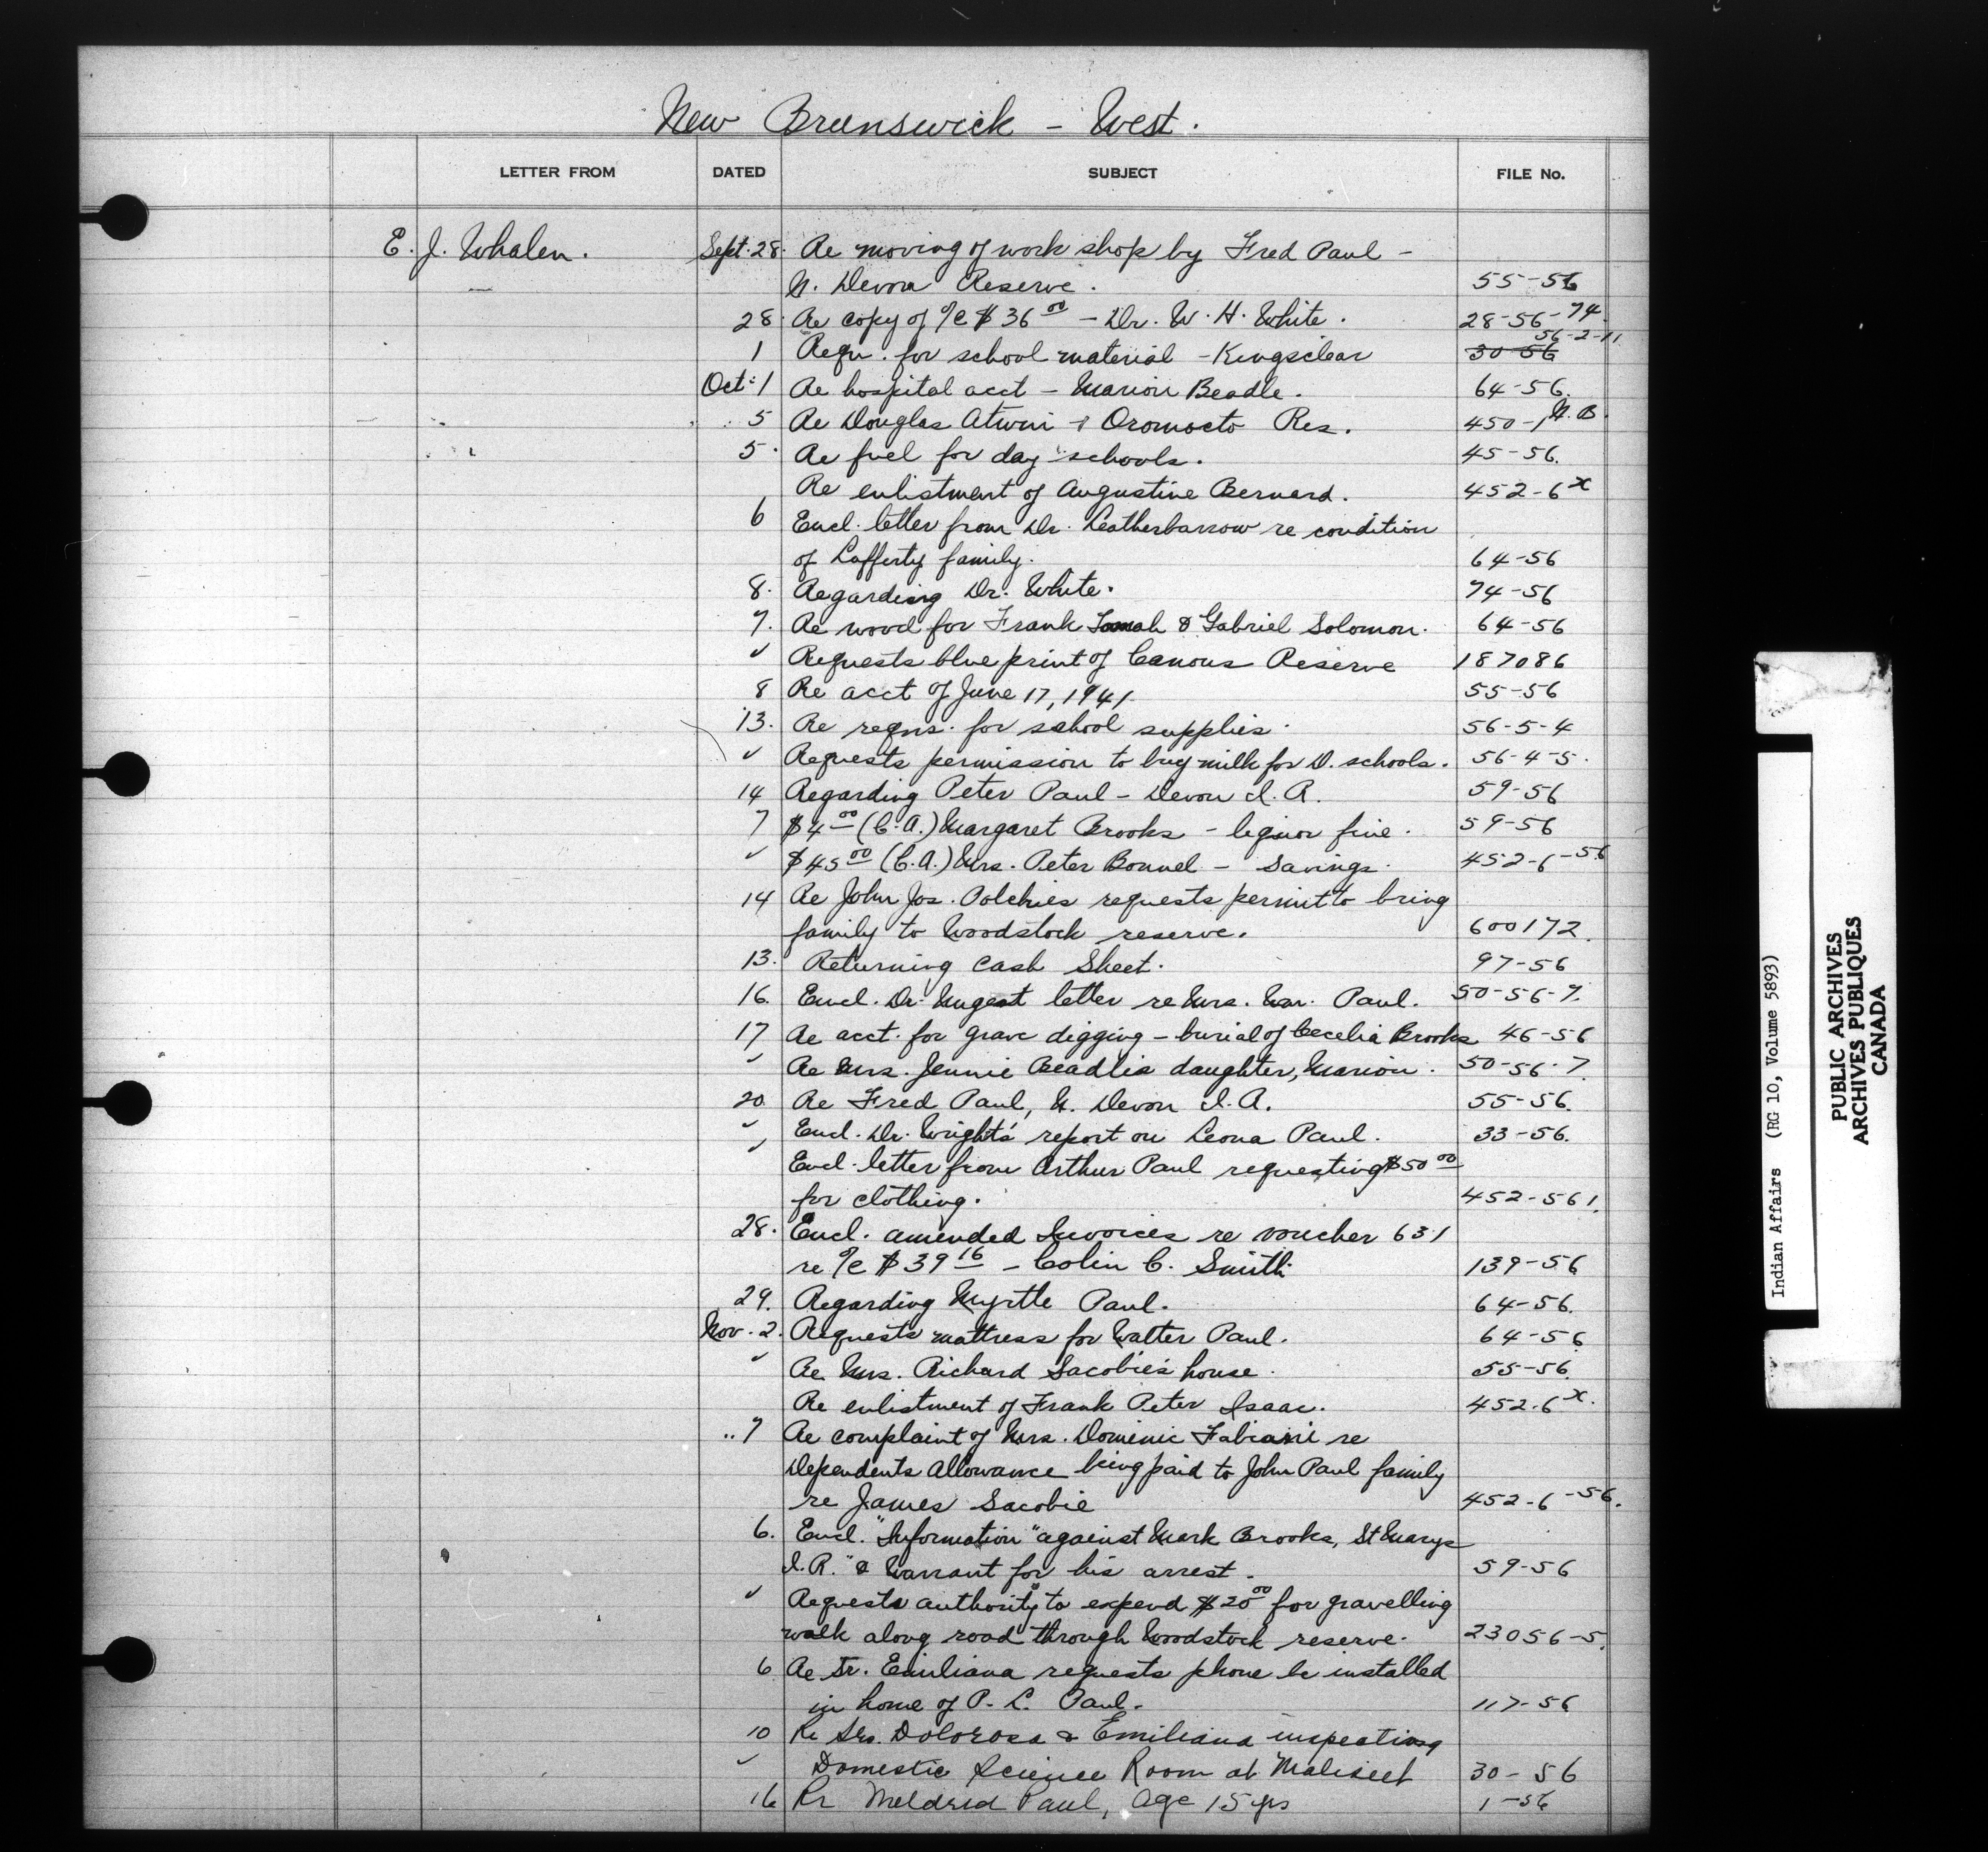 New Brunswick - West.
LETTER FROM DATED SUBJECT FILE No.
E. J. Whalen. Sept. 28. Re moving of work shop by Fred Paul -
N. Devon Reserve. 55-56
28. Re copy of a/c $36 00 - Dr. W. H. White. 28-56-74
1 Reqn. for school material - Kingsclear 30-56 56-2-11
Oct. 1 Re hospital acct - Marion Beadle. 64-56.
5 Re Douglas Atwin & Oromocto Res. 450-1 N.B.
5. Re fuel for day schools. 45-56.
Re enlistment of Augustine Bernard. 452-6 x
6 Encl. letter from Dr. Leatherbarrow re condition
of Lafferty family. 64-56
8. Regarding Dr. White. 74-56
7. Re wood for Frank Tomah & Gabriel Solomon. 64-56
✓ Requests blue print of Canous Reserve 187086
8 Re acct of June 17, 1941. 55-56
13. Re reqns. for school supplies. 56-5-4
✓ Requests permission to buy milk for D. schools. 56-4-5.
14 Regarding Peter Paul - Devon I.R. 59-56
7 $4 00 (C.A.) Margaret Brooks - liquor fine. 59-56
✓ $45 00 (C.A.) Mrs. Peter Bonnel - Savings. 452-6-56
14 Re John Jos. Polchies requests permit to bring
family to Woodstock reserve. 600172.
13. Returning Cash Sheet. 97-56
16. Encl. Dr. Nugent letter re Mrs. Wm. Paul. 50-56-7.
17 Re acct. for grave digging - burial of Cecelia Brooks 46-56
✓ Re Mrs. Jennie Beadlis daughter, Marion. 50-56-7
20 Re Fred Paul, N. Devon I.R. 55-56.
✓ Encl. Dr. Wright's report on Leona Paul. 33-56.
✓ Encl. letter from Arthur Paul requesting $50 00
for clothing. 452-561.
28. Encl. amended Invoices re voucher 631
re a/c $39 16 - Colin C. Smith 139-56
29. Regarding Myrtle Paul. 64-56.
Nov. 2. Requests mattress for Walter Paul. 64-56
✓ Re Mrs. Richard Sacobie's house. 55-56.
Re enlistment of Frank Peter Isaac. 452-6 x.
7 Re complaint of Mrs. Dominic Fabiani re
Dependents Allowance being paid to John Paul family
re James Sacobie 452-6-56.
6. Encl. "Information" against Mark Brooks, St Marys
I.R." & Warrant for his arrest. 59-56
✓ Requests authority to expend $20 00 for gravelling
walk along road through Woodstock reserve. 23056-5.
6 Re Sr. Emiliana requests phone be installed
in home of P. L. Paul. 117-56
10 Re Srs. Dolorosa & Emiliana inspecting
✓ Domestic Science Room at Maliseet 30-56
16 Re Meldred Paul, Age 15 yrs 1-56
Indian Affairs (RG 10, Volume 5893)
PUBLIC ARCHIVES
ARCHIVES PUBLIQUES
CANADA